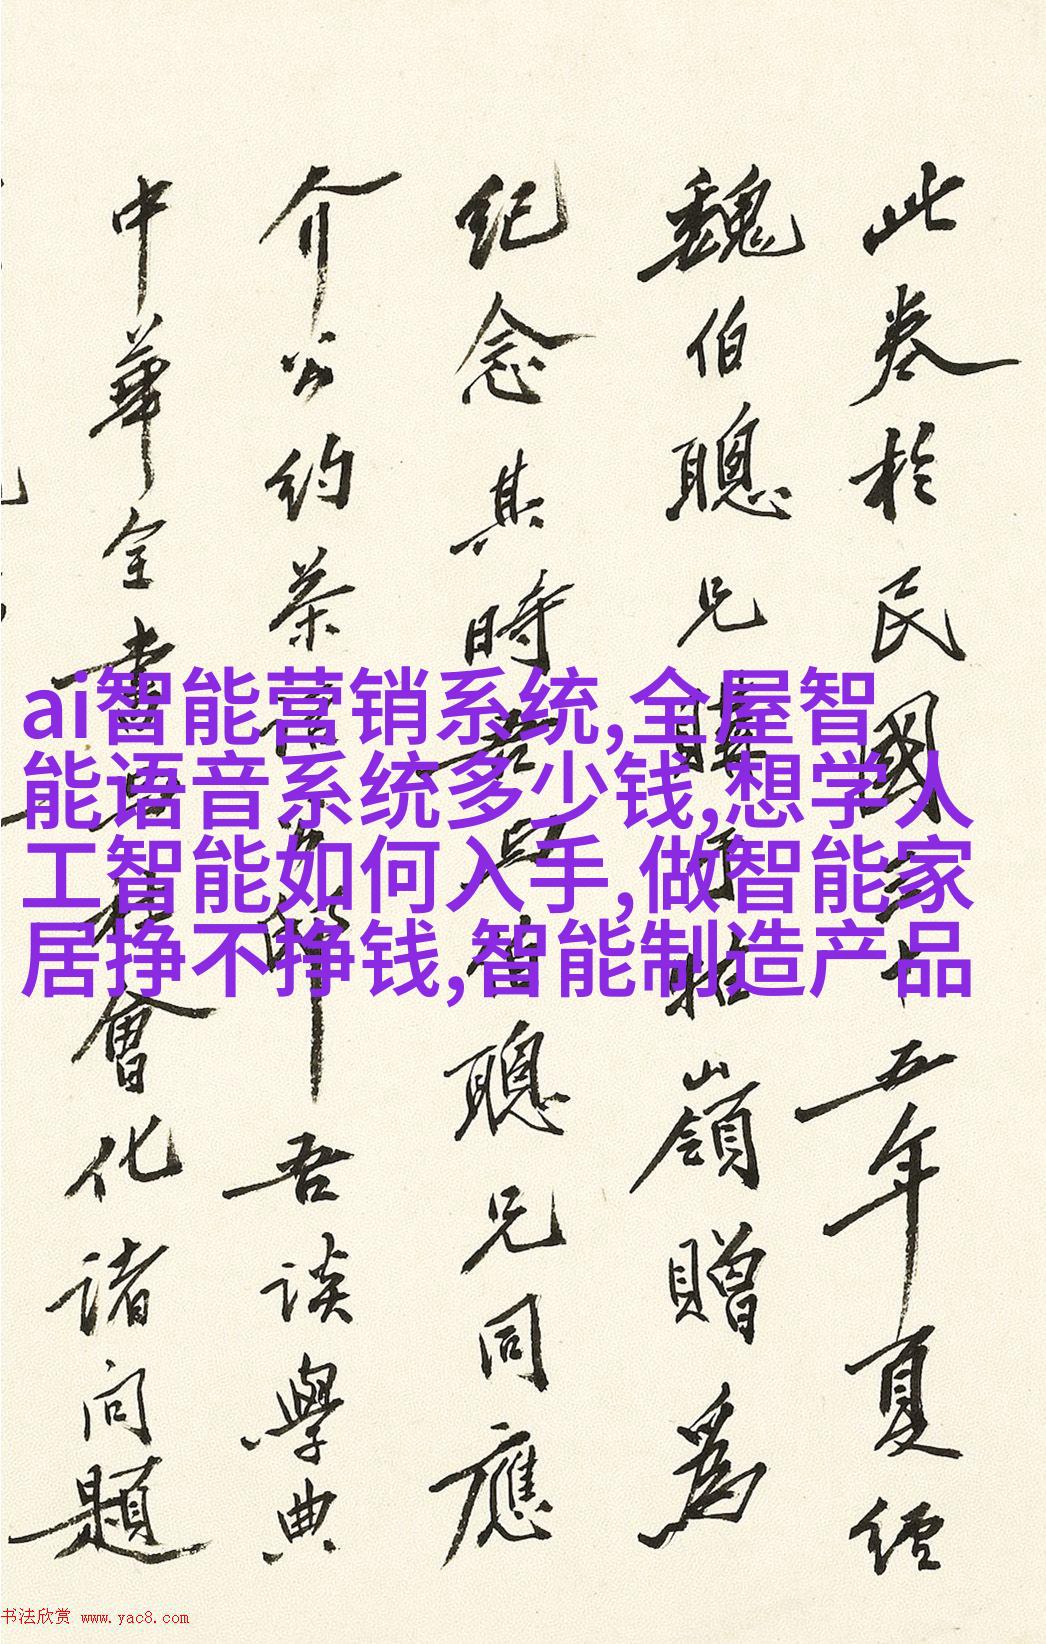 ai智能营销系统,全屋智
能语音系统多少钱,想学人
工智能如何入手,做智能家
居挣不挣钱,智能制造产品
此卷於民國三十五年夏經
魏伯聰兄購牯嶺贈為
紀念其時吾與聰兄同應
介公約茶吾談學典
中華全書與社會化諸問題
书法欣赏 www.yac8.com